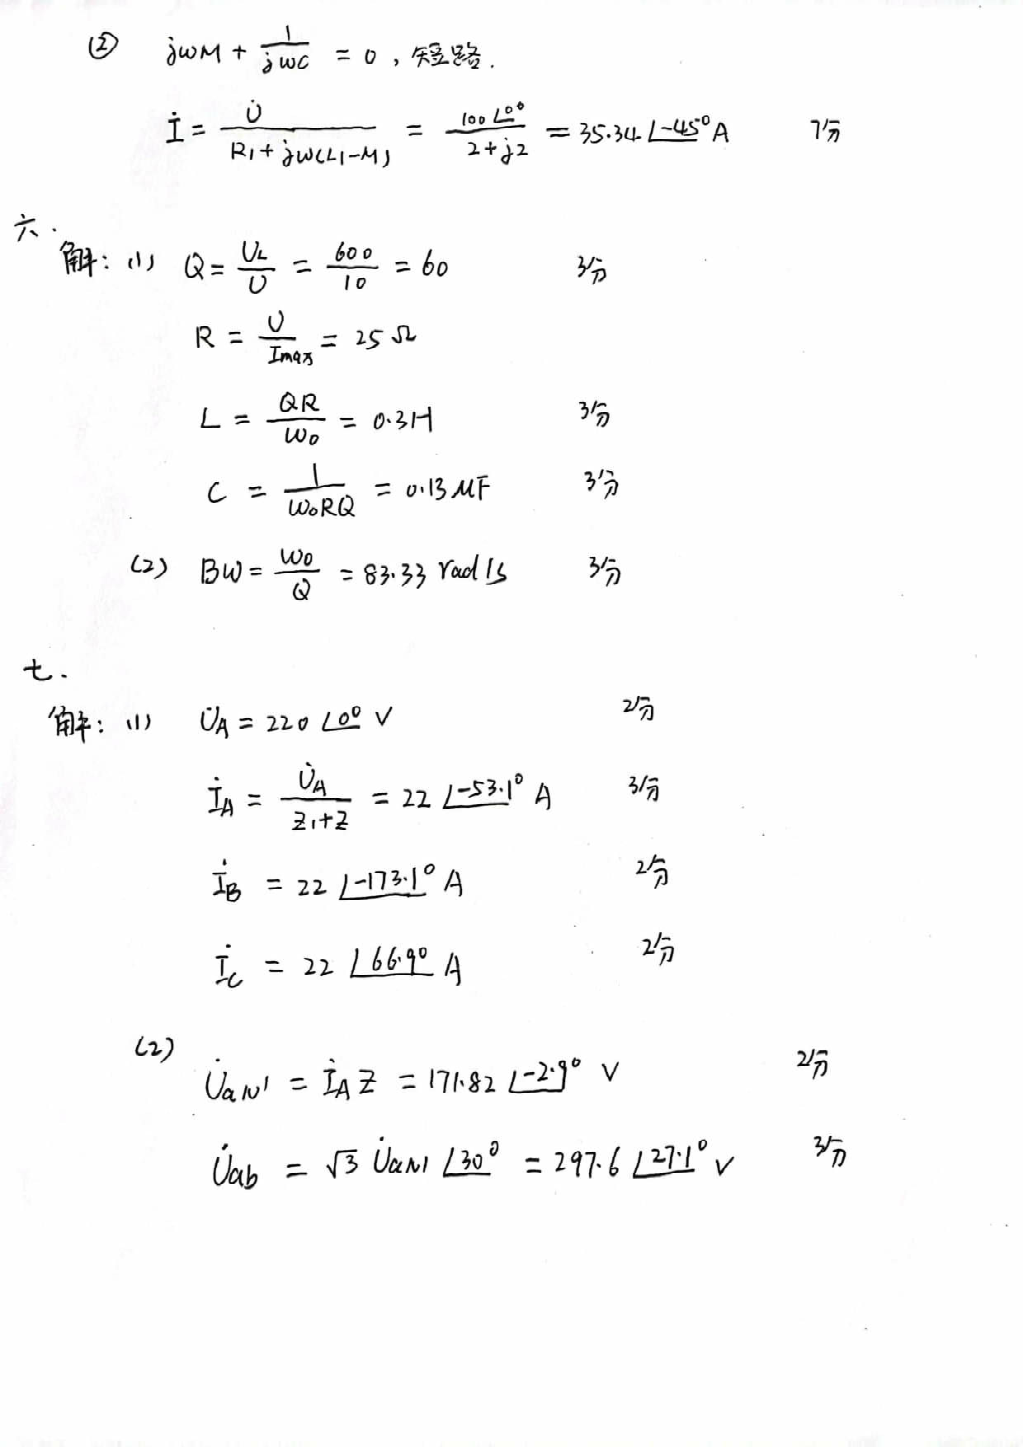 ② jwM + 1/jwC = 0 , 短路.
İ = U̇/(R1 + jw(L1-M)) = 100∠0°/(2+j2) = 35.34∠-45° A 7分
六.
解: (1) Q = UL/U = 600/10 = 60 3分
R = U/Imax = 25 Ω
L = QR/W0 = 0.3H 3分
C = 1/W0RQ = 0.13 MF 3分
(2) BW = W0/Q = 83.33 rad/s 3分
七.
解: (1) U̇A = 220∠0° V 2分
İA = U̇A/(Z1+Z) = 22∠-53.1° A 3分
İB = 22∠-173.1° A 2分
İC = 22∠66.9° A 2分
(2)
U̇aN' = İA Z = 171.82∠-2.9° V 2分
U̇ab = √3 U̇aN1∠30° = 297.6∠27.1° V 3分